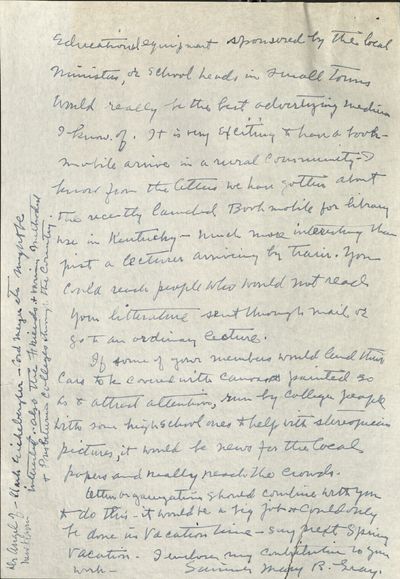 Educational equipment sponsored by the local
ministers, or school heads in small towns
would really be the best advertizing medium
I know of. It is very exciting to have a book-
mobile arrive in a rural community - I
know from the letters we have gotten about
the recently launched Bookmobile for library
use in Kentucky - much more interesting than
just a lecturer arriving by train. You
could reach people who would not read
your litterature sent through mail or
go to an ordinary lecture.
If some of your members would lend their
cars to be covered with canvas painted so
as to attract attention, run by college people
with some high school ones to help with stereopticon
pictures, it would be news for the local
papers and really reach the crowds.
Other organizations should combine with you
& do this - it would be a big job & could only
be done in vacation time - say next Spring
vacation. I enclose my contribution to your
work -
Mary B. Gray.
might be
interested - also the Friends & many Methodist
& Presbyterian colleges through the country.